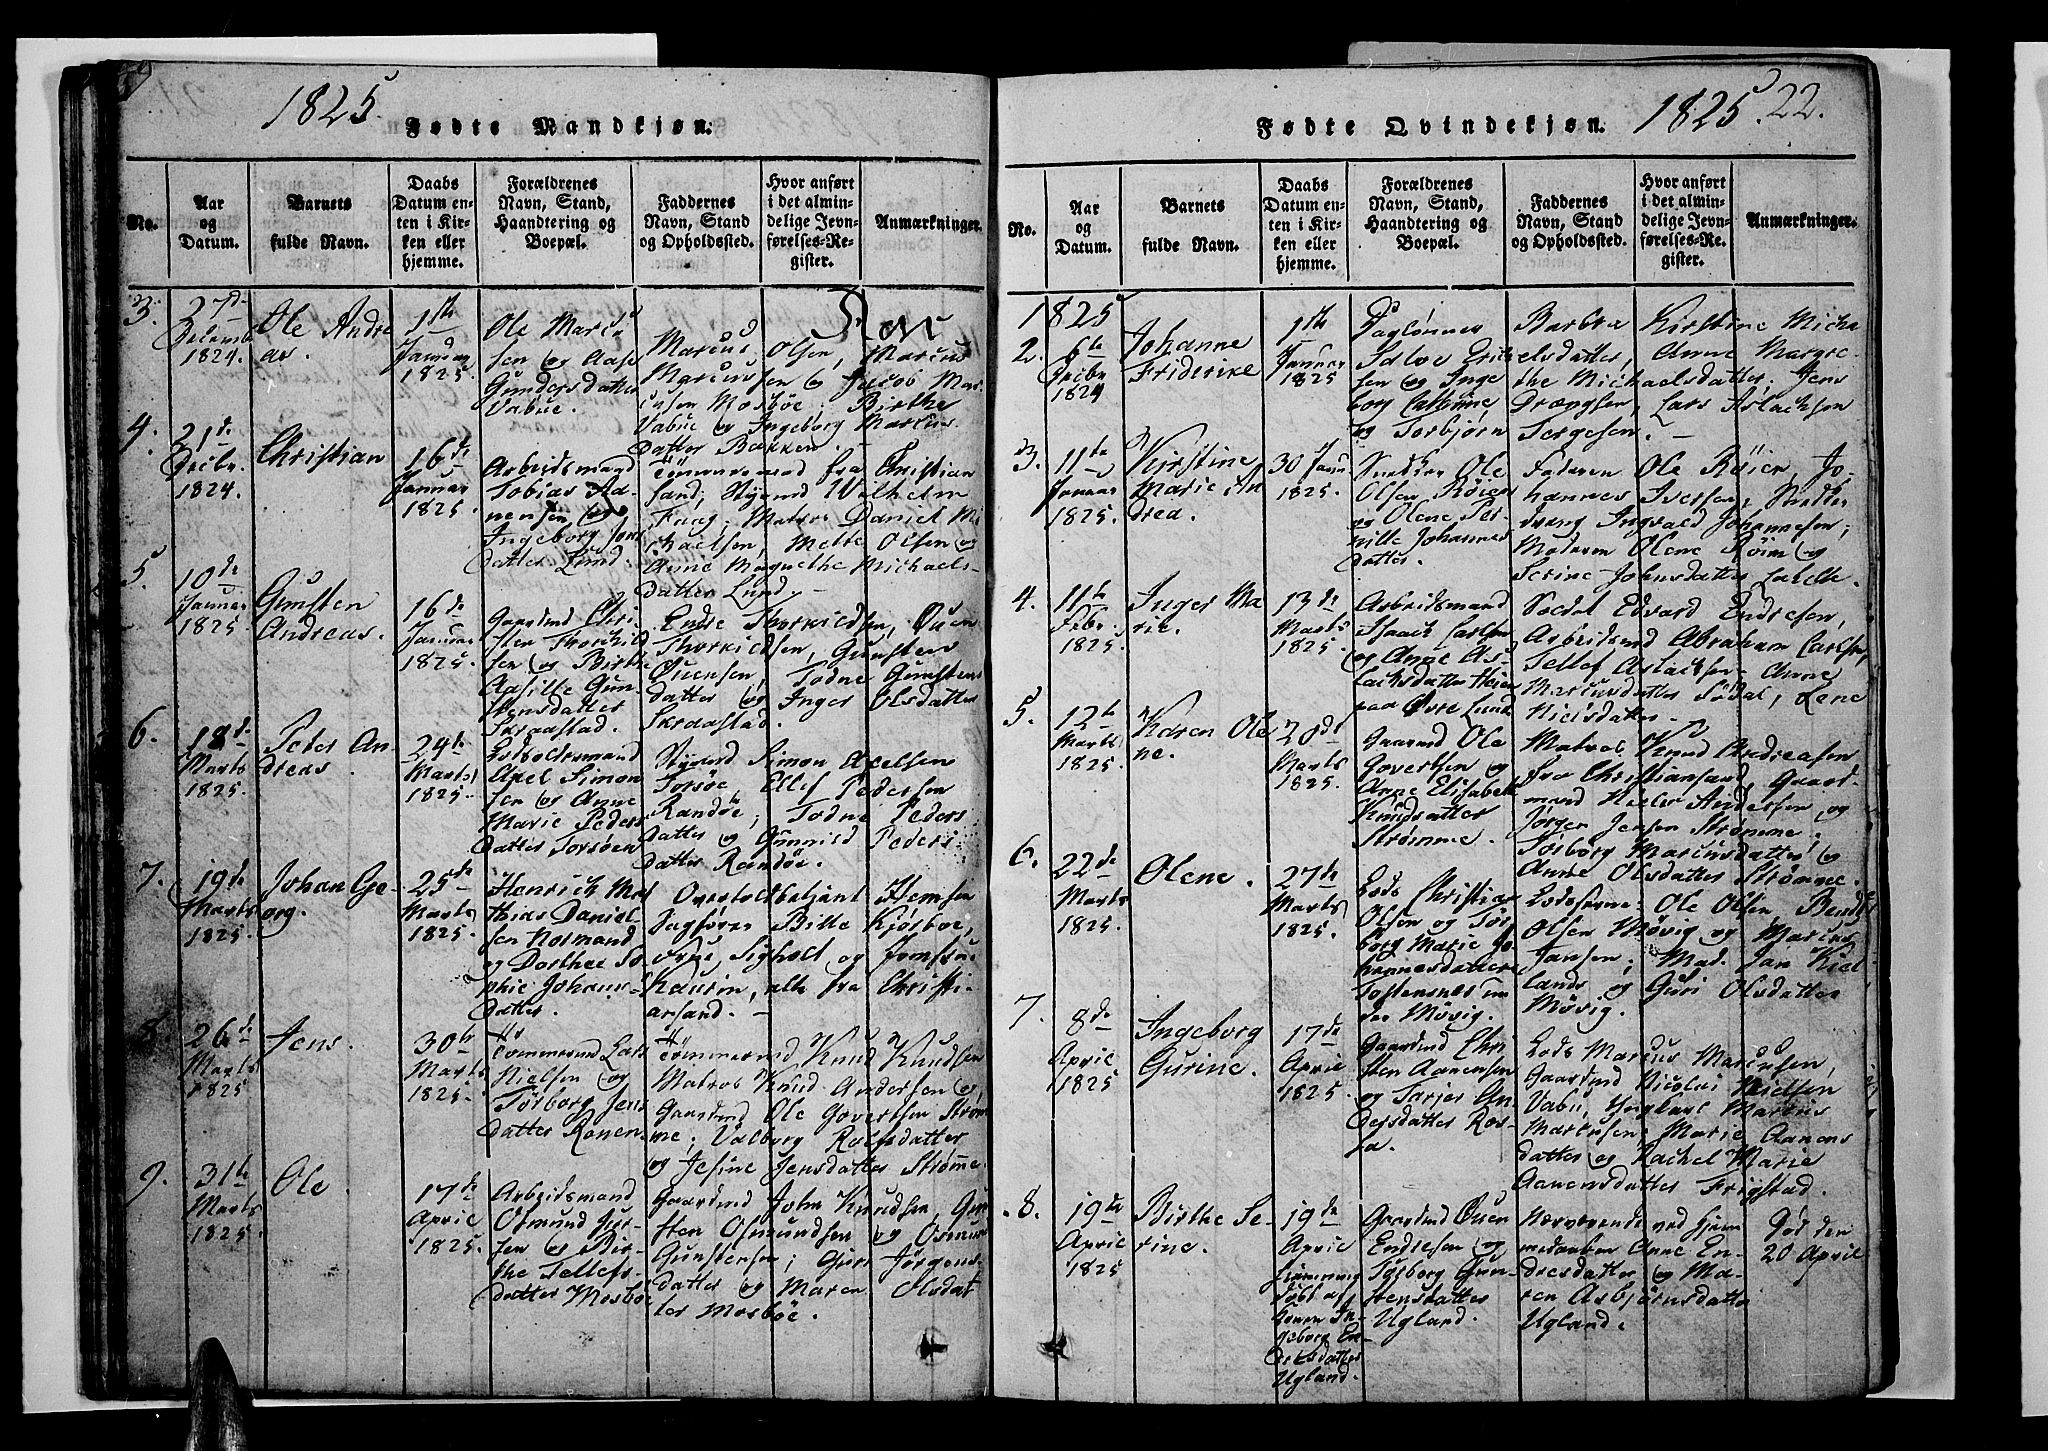 1825.
Fødte Mandkjøn.
No.
Aar og Datum.
Barnets fulde Navn.
Daabs Datum enten i Kirken eller hjemme.
Forældrenes Navn, Stand, Haandtering og Boepæl.
Faddernes Navn, Stand og Opholdssted.
Hvor anført i det almindelige Jevnførelses-Register.
Anmærkninger.
3.
27de
1824.
Ole Andreas.
1ste
Januar
1825.
Ole Marcus
sen og Aase
Gundersdatter
Vabue.
Marcus Olsen, Marcus
Marcussen og Jacob Mar
cusen Mosbøe. Birthe
Vabue og Ingeborg Marcus
datter Bakken.
4.
21de
Decbr.
1824.
Christian
16de
Januar
1825.
Arbeidsmand
Tobias Aa
nensen og
Ingeborg
datter Lund.
Tømmermand fra Christian
sand, Styrmd Wilhelm
Matros Daniel Mi
chaelsen, Mette Olsen og
Anne Magrethe Michaels-
datter Lund.
5.
10de
Januar
1825.
Gunsten
Andreas.
16de
Januar
1825.
Gaardmd Chri
sten Thorkild
sen og Birthe
Aasille Gun
stensdatter
Skraastad.
Endre Thorkildsen, Ouen
Thorkildsen, Gunsten
Ouensen, Todne Gunstens
datter og Inger Olsdatter
Skraastad.
6.
18de
Marts
1825.
Peder An-
dreas.
24de
Marts
1825.
Axel Simon
sen og Anne
Marie Peders
datter Torsøen
Styrmd Simon Axelsen
Torsøe, Ellef Pedersen
Randøe; Todne Peders
datter og Gunnild Peders
datter Randøe.
7.
19de
Marts
1825.
Johan Ge-
org.
25de
Marts
1825.
Henrich Mat
thias Daniel
sen Normand
og Dorthea So
phie Johans-
datter.
Overtoldbetjent Hemsen
Jagtfører Bille Kjørboe,
Sigholt og Jomfru
Kaurin, alle fra Christi-
ansand.
8.
26de
Marts
1825
Jens.
30te
Marts
1825.
Tømmermd Lars
Nielsen og
Torborg Jens
datter Ronen
Tømmermd Knud Knudsen
Matros Knud Andersen og
Gaardmd Ole Govertsen Strøm
me; Valborg Rolfsdatter
og Jesine Jensdatter Strømme.
9.
31te
Marts
1825.
Ole.
17de
April
1825.
Arbeidsmand
Osmund Jør
sen og Bir
the Tellefs
datter Mosbøe
Gaardmd John Knudsen, Gun
sten Osmundsen og Osmun
Gunstensen; Guri Jørgens
datter og Maren Olsdat
ter Mosbøe.
Fødte Qvindekjøn.
1825. 22.
No.
Aar og Datum.
Barnets fulde Navn.
Daabs Datum enten i Kirken eller hjemme.
Forældrenes Navn, Stand, Haandtering og Boepæl.
Faddernes Navn, Stand og Opholdssted.
Hvor anført i det almindelige Jevnførelses-Re-gister.
Anmærkninger.
1825
2.
6te
Decbr
1824
Johanne
Friderike
1ste
Januar
1825
Dagløner
Salve Erik
sen og Inge
borg Cathrine
og Torbjørn
Barbra Kirstine Micha
elsdatter, Anne Margre-
the Michaelsdatter. Jens
Drængsen, Lars Aslachsen
Tergesen.
3.
11te
Januar
1825.
Kirstine
Marie An
drea.
30 Janu
1825.
Snedker Ole
Olsen Røien
og Olene Per
nille Johannes
datter.
Faderen Ole Røien, Jo-
hannes Iversen, Snedker
dreng Ingvald Johannesen;
Moderen Olene Røien og
Serine Johnsdatter
4.
11te
Febr.
1825.
Inger Ma
rie.
13de
Marts
1825.
Arbeidsmand
Isaach Carlsen
og Anne As
lachsdatter
paa Øvre Lund
Soldat Edvard Endresen,
Arbeidsmd Abraham Carlsen,
Tellef Aslachsen, Anne
Marcusdatter Sødal, Lene
Nielsdatter.
5.
12te
Marts
1825.
Karen Ole
ne.
20de
Marts
1825.
Gaarmd Ole
Govertsen og
Anne Elisabeth
Knudsdatter
Strømme.
Matros Knud Andreasen
fra Christiansand, Gaard
mand Niels Andersen og
Jørgen Jensen Strømme.
Torborg Marcusdatter og
Anne Olsdatter Strømme.
6.
22de
Marts
1825.
Olene.
27de
Marts
1825.
Lods Christian
Olsen og Tor
borg Marie Jo
hannesdatter
der Møvig.
Lodserne Ole Olsen, Bendt
Olsen Møvig og Marcus
Jansen; Mad. Jan Kiel
lands og Guri Olsdatter
Møvig.
7.
8de
April
1825
Ingeborg
Gurine.
17de
April
1825.
Gaardmd Chri
sten Aanensen
og Tarjer An
dersdatter Ros
sa.
Lods Marcus Marcusen,
Gaardmd Nicolai Nielsen
Vabu, Ungkarl Marcus
Marcusen; Marie Aanens
datter og Rachel Marie
Aanensdatter Frigstad.
8.
19de
April
1825
Birthe Se-
rine.
19de
April
døbt af
Konen In-
geborg En-
dresdatter
Ugland.
Gaardmd Ouen
Endresen og
Torborg Gun
stensdatter
Ugland.
Nærværende ved Hjem
medaaben Anne En-
dresdatter og Ma-
ren Asbjørnsdatter
Ugland.
Død den
20 April